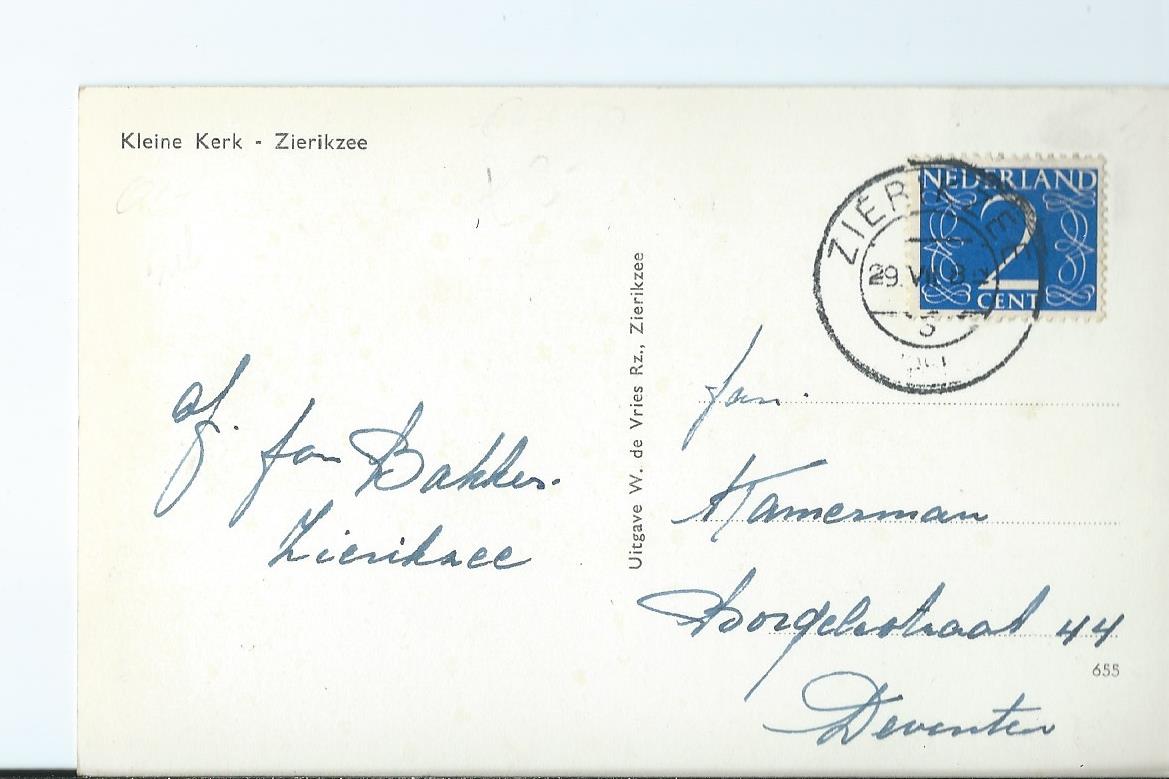 Kleine Kerk - Zierikzee
NEDERLAND
2
CENT
ZIERIKZEE
29.VII.8
5
Uitgave W. de Vries Rz., Zierikzee
af. Jan Bakker.
Zierikzee
Fam.
Kamerman
Borgelstraat 44
655
Deventer